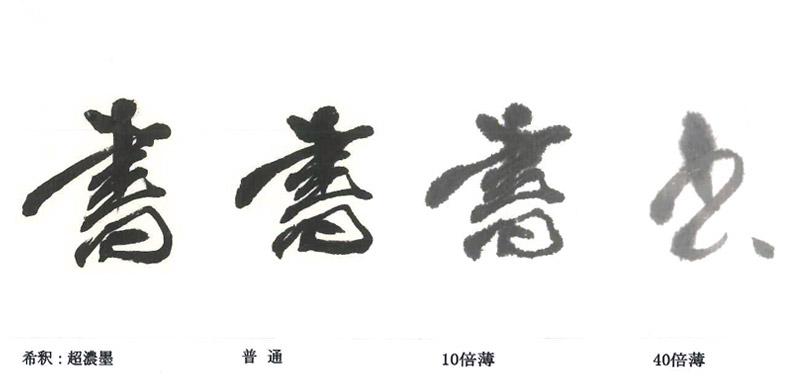 書 書 書 書
希釈：超濃墨 普通 10倍薄 40倍薄